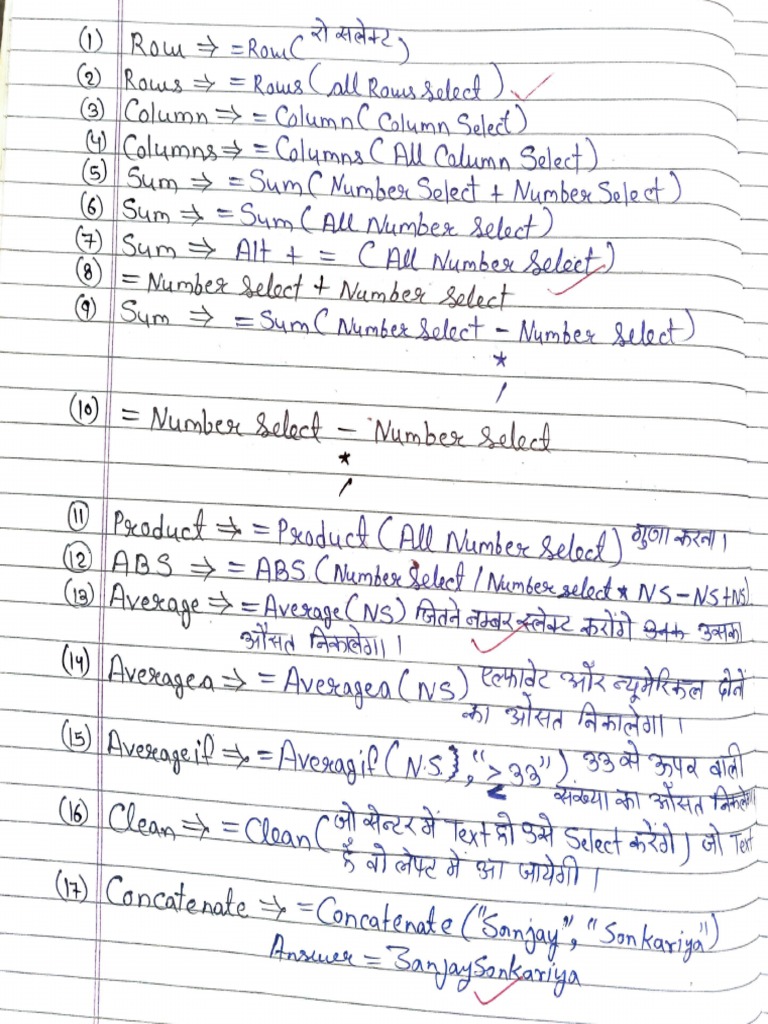 (1) Row ⇒ =Row( रो सलेक्ट )
(2) Rows ⇒ = Rows ( all Rows select )
(3) Column ⇒ = Column ( Column Select )
(4) Columns ⇒ = Columns ( All Column Select )
(5) Sum ⇒ = Sum ( Number Select + Number Select )
(6) Sum ⇒ = Sum ( All Number Select )
(7) Sum ⇒ Alt + = ( All Number Select )
(8) = Number Select + Number Select
(9) Sum ⇒ = Sum ( Number Select - Number Select )
*
/
(10) = Number Select - Number Select
*
/
(11) Product ⇒ = Product ( All Number Select ) गुणा करना।
(12) ABS ⇒ = ABS ( Number Select / Number select * NS - NS + NS )
(13) Average ⇒ = Average ( NS ) जितने नम्बर स्लेक्ट करोंगे उसका
औसत निकालेगा।
(14) Averagea ⇒ = Averagea ( NS ) एल्फावेट और न्यूमेरिकल दोनें
का औसत निकालेगा।
(15) Averageif ⇒ = Averagif ( N.S. }, "≥33" ) 33 से ऊपर वाली
संख्या का औसत निकलेगा
(16) Clean ⇒ = Clean ( जो सेन्टर में Text हो उसे Select करेंगे ) जो Text
है वो लेफ्ट में आ जायेगी।
(17) Concatenate ⇒ = Concatenate ( "Sanjay", "Sonkariya" )
Answer = SanjaySonkariya